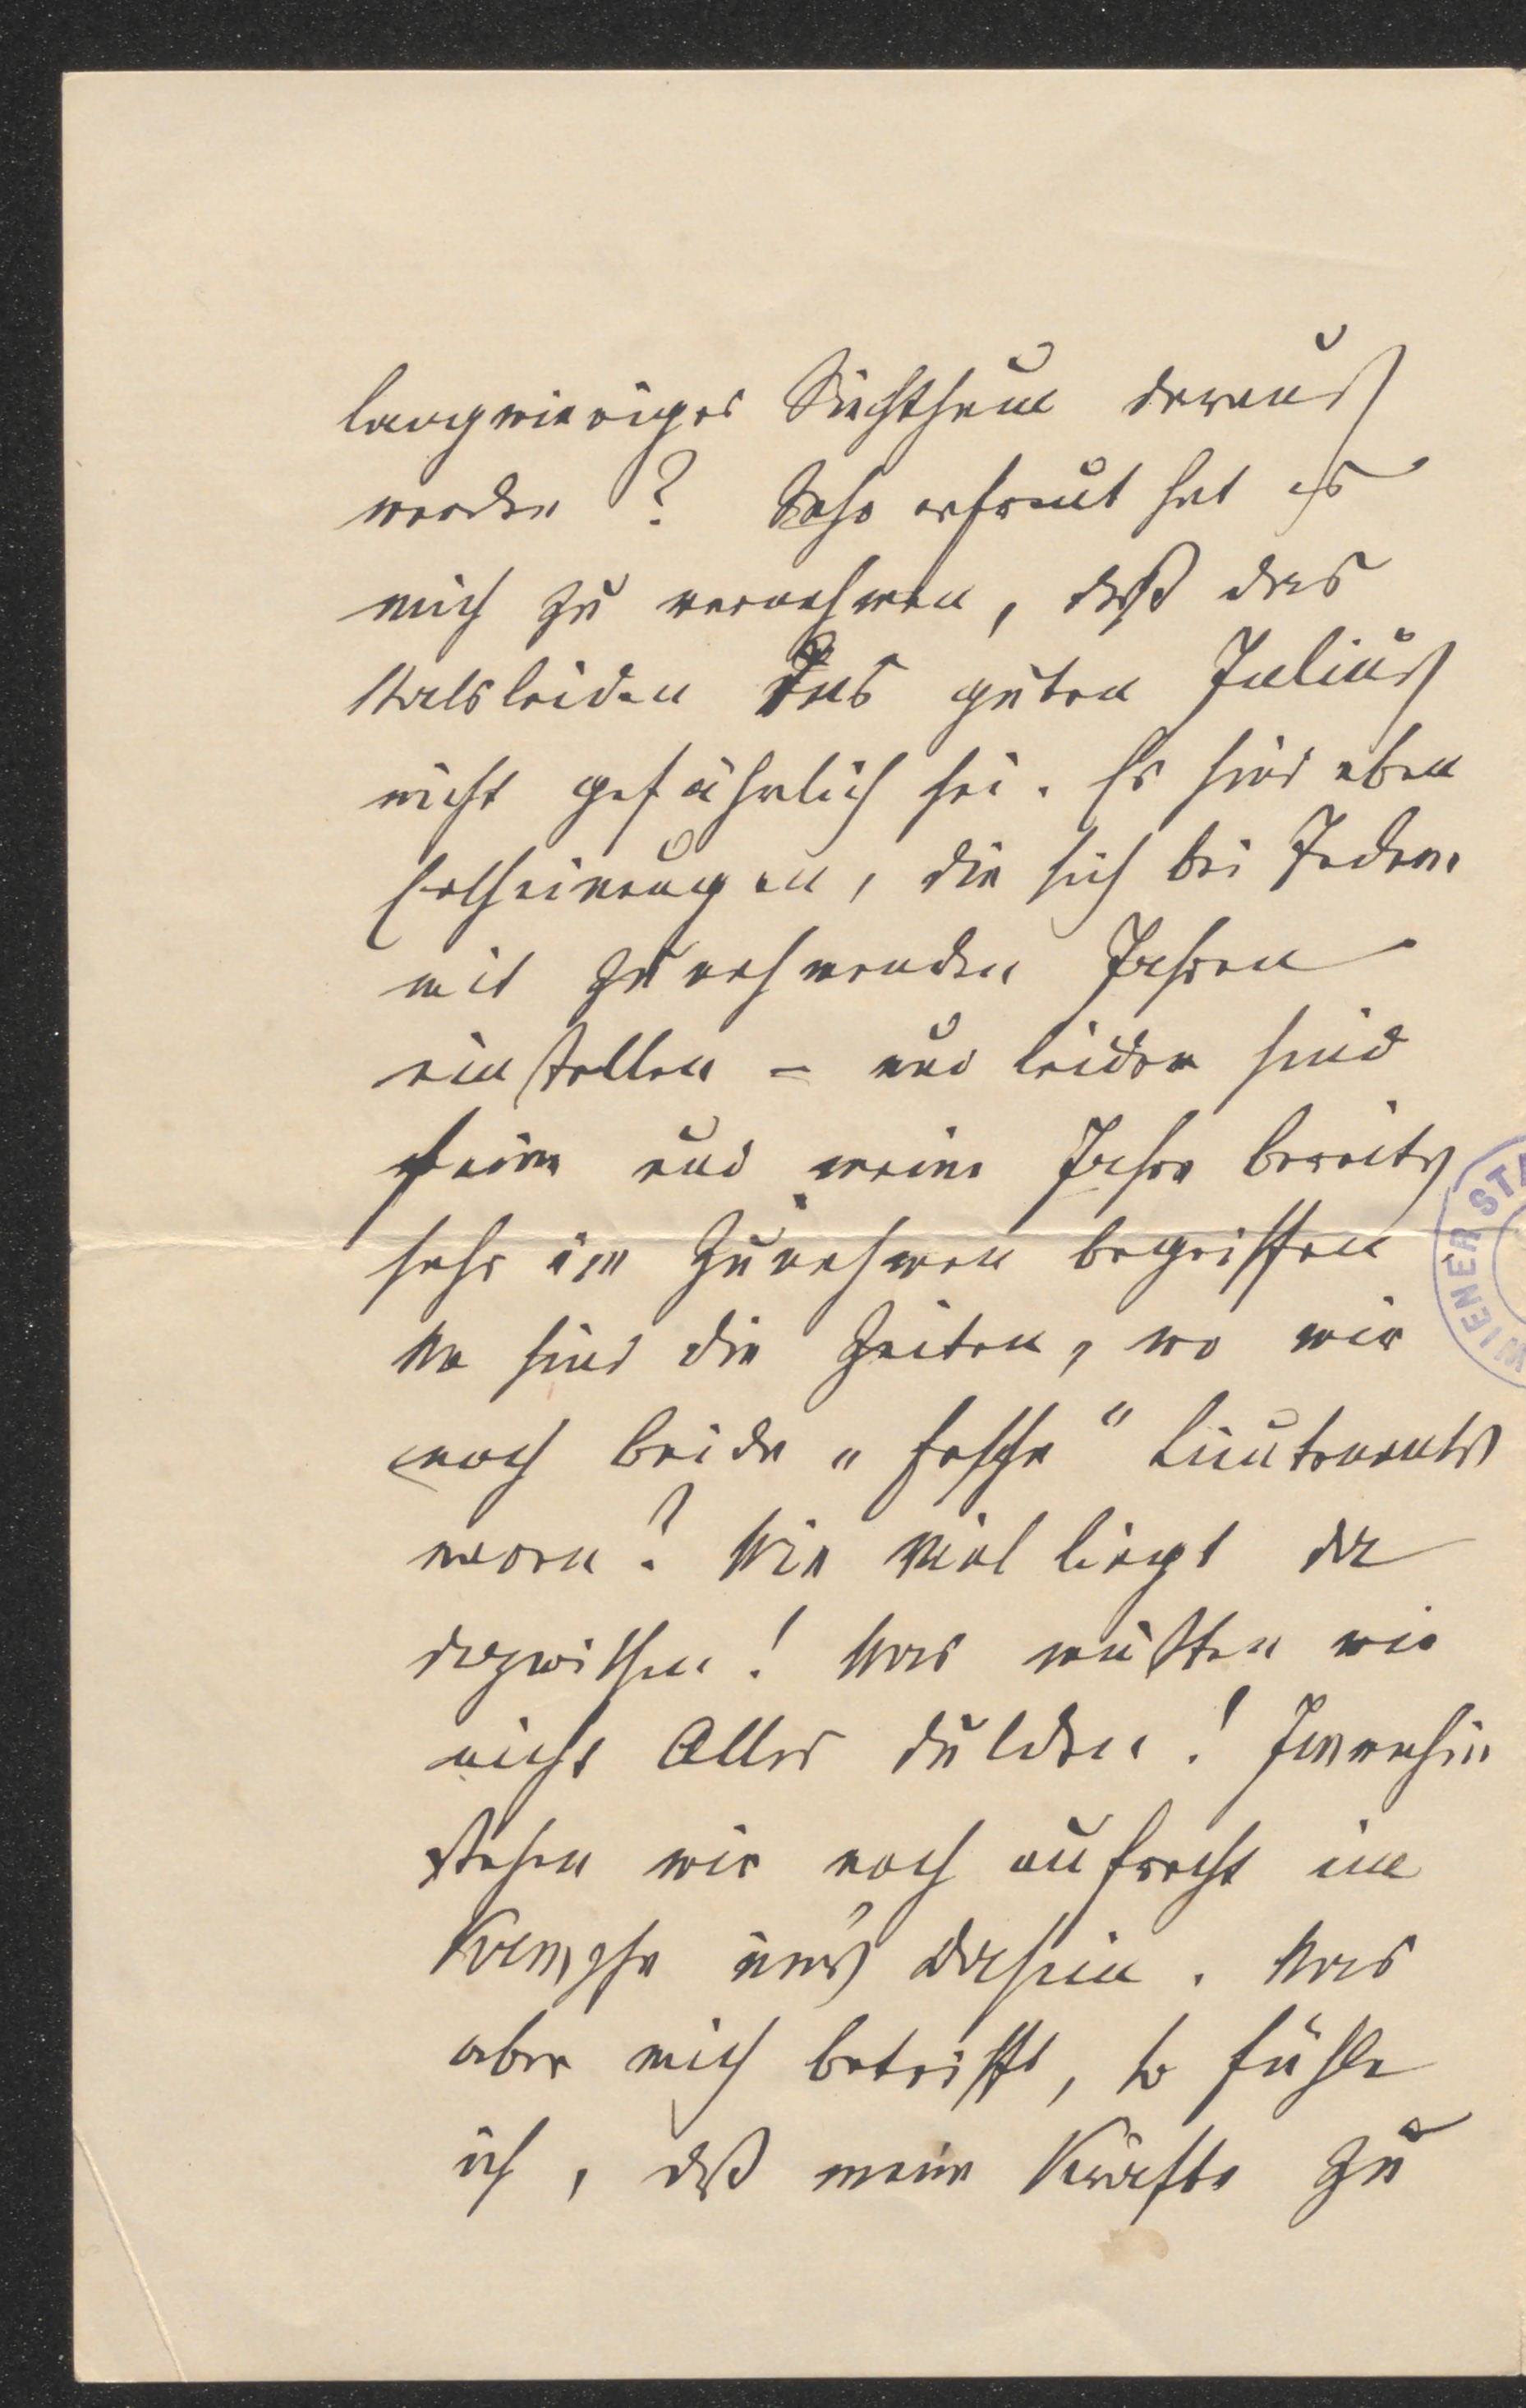 langwieriges Siechthum daraus
werden? Sehr erfreut hat es
mich zu vernehmen, daß das
Halsleiden des guten Julius
nicht gefährlich sei. Es sind eben
Erscheinungen, die sich bei Jedem
mit zunehmenden Jahren
einstellen – und leider sind
seine und meine Jahre bereits
sehr im Zunehmen begriffen
Wo sind die Zeiten, wo wir
noch beide „fesche" Lieutenants
waren? Wie viel liegt da
dazwischen! Was mußten wir
nicht Alles dulden! Immerhin
stehen wir noch aufrecht im
Kampfe um's Dasein. Was
aber mich betrifft, so fühle
ich, daß meine Kräfte zu
WIENER STA